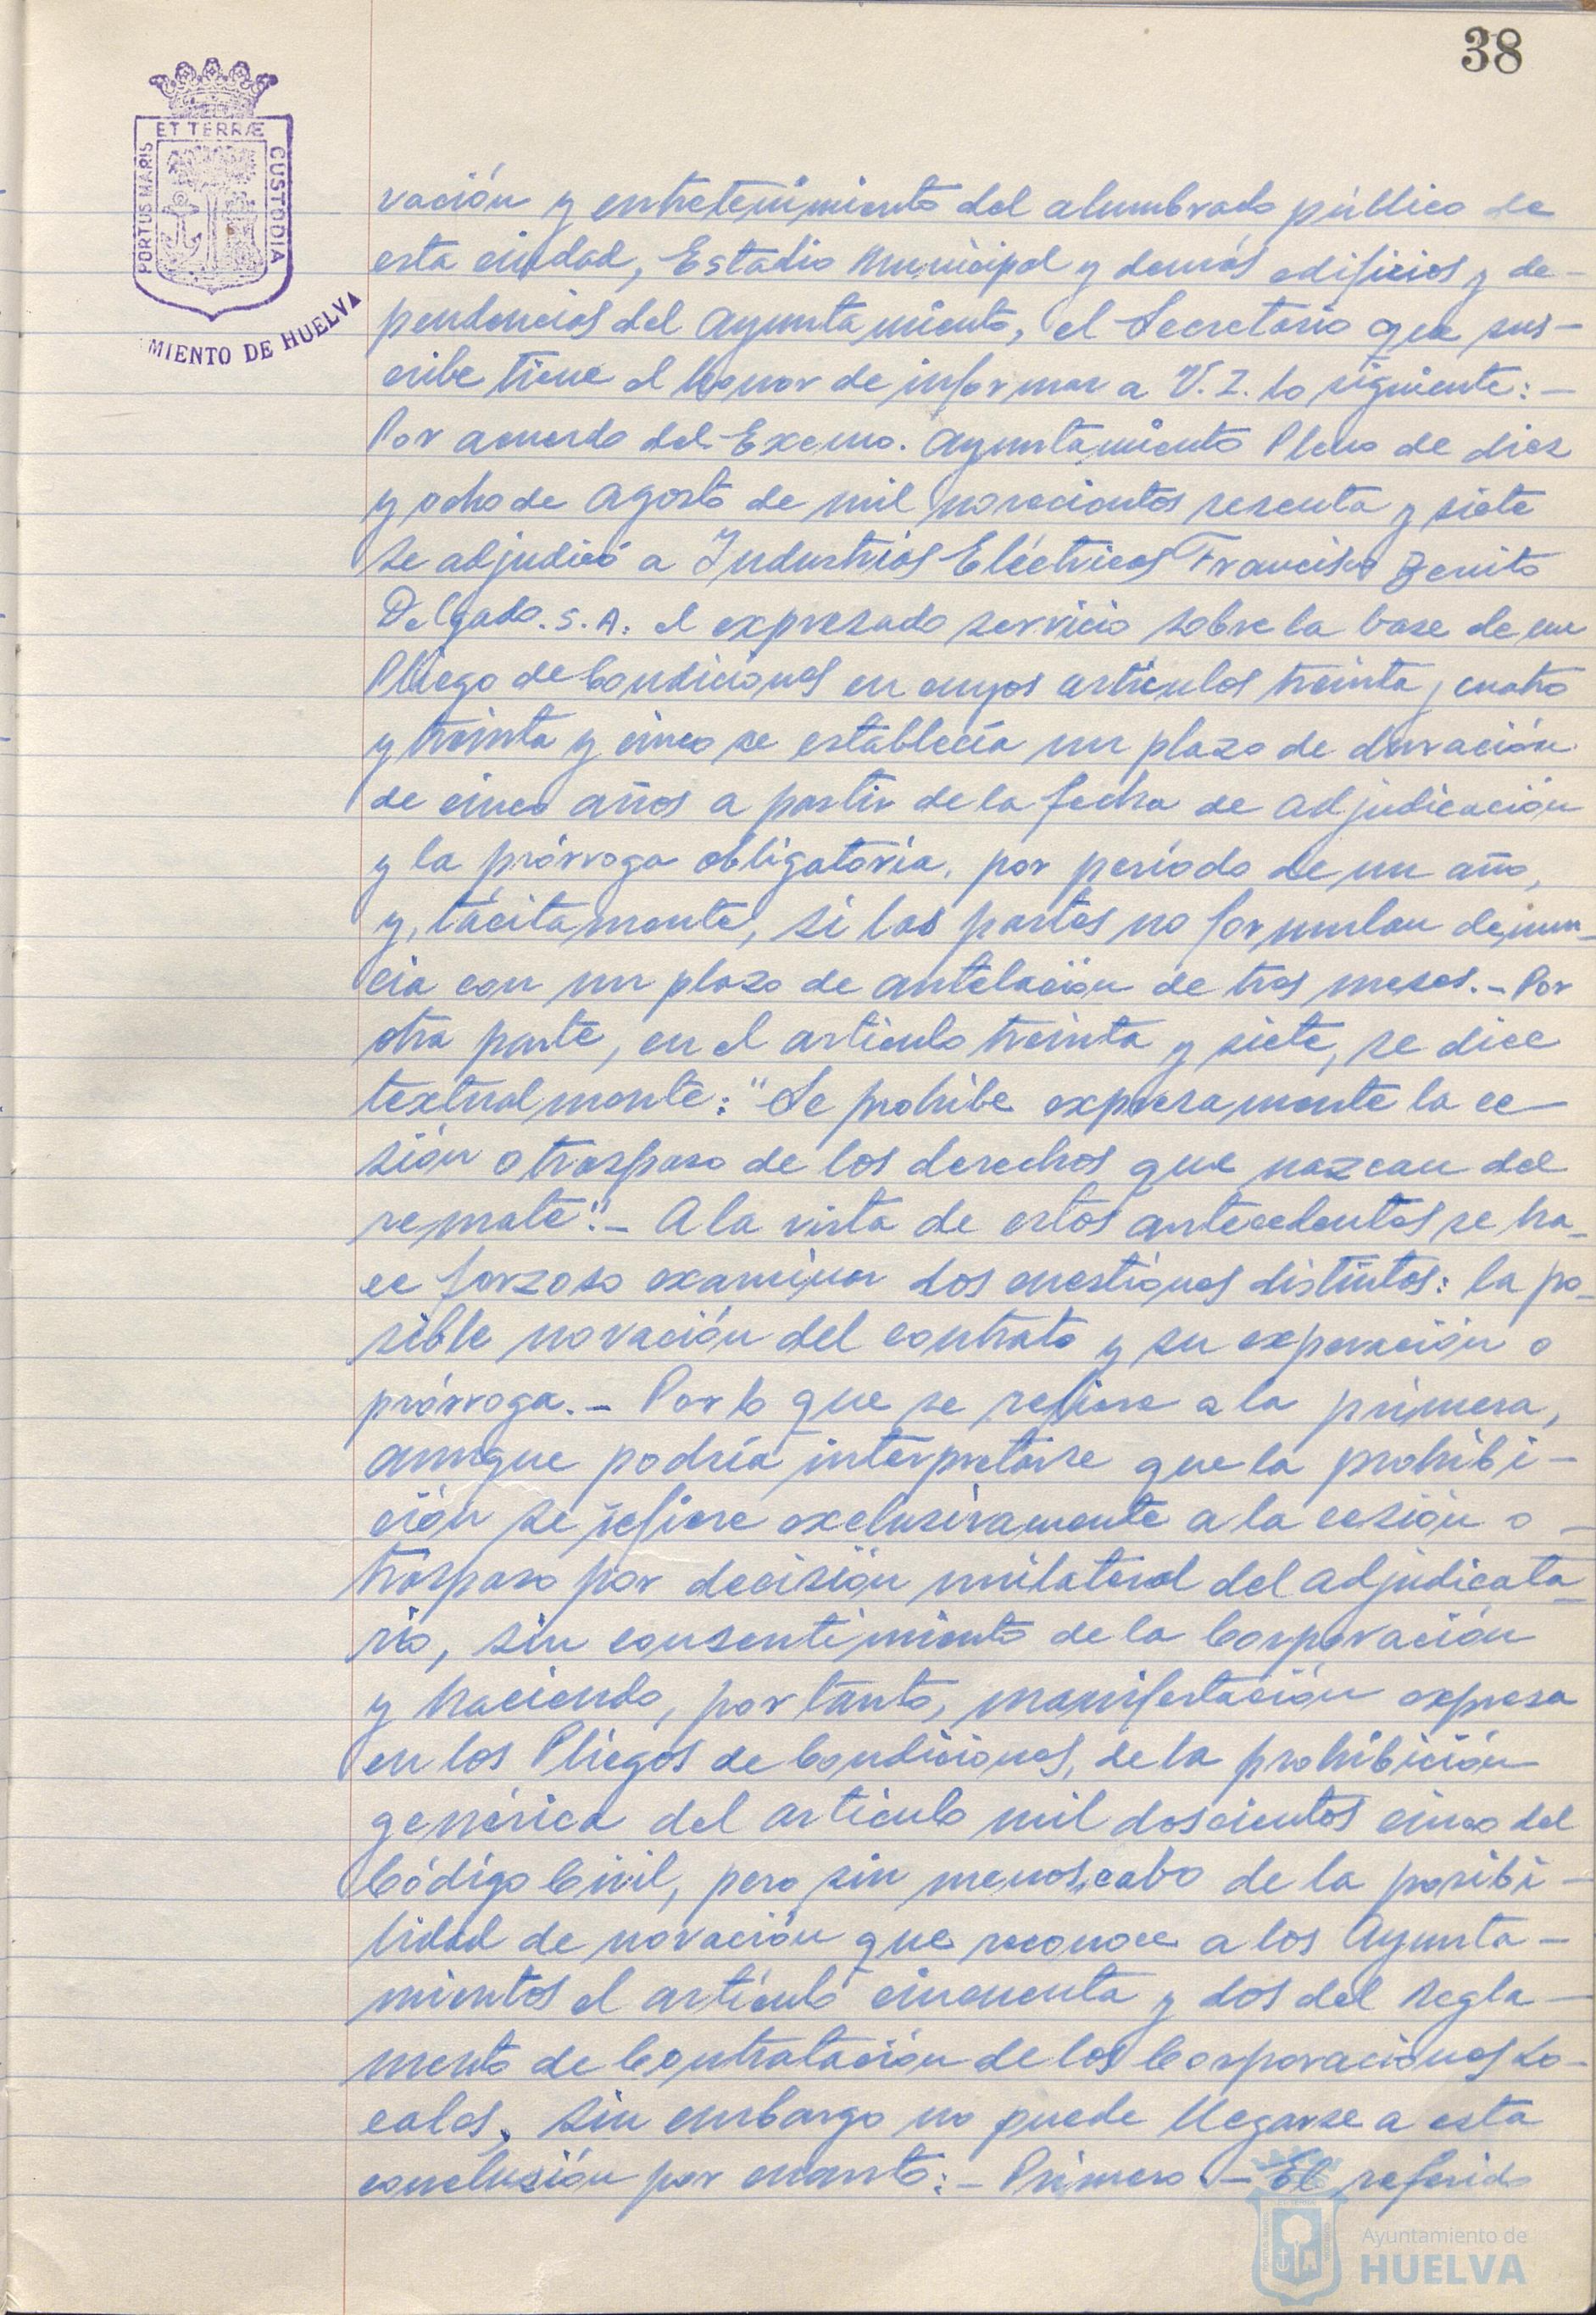 38
ET TERRÆ
PORTUS MARIS
CUSTODIA
MIENTO DE HUELVA
vación y entretenimiento del alumbrado público de
esta ciudad, Estadio Municipal y demás edificios y de-
pendencias del Ayuntamiento, el Secretario que sus-
cribe tiene el honor de informar a V.I. lo siguiente: -
Por acuerdo del Excmo. Ayuntamiento Pleno de diez
y ocho de Agosto de mil novecientos sesenta y siete
se adjudicó a Industrias Eléctricas Francisco Benito
Delgado. S.A. el expresado servicio sobre la base de un
Pliego de Condiciones en cuyos artículos treinta y cuatro
y treinta y cinco se establecía un plazo de duración
de cinco años a partir de la fecha de adjudicación
y la prórroga obligatoria, por período de un año,
y, tácitamente, si las partes no formulan denun-
cia con un plazo de antelación de tres meses. - Por
otra parte, en el artículo treinta y siete, se dice
textualmente: "Se prohibe expresamente la ce-
sión o traspaso de los derechos que nazcan del
remate". - A la vista de estos antecedentes se ha-
ce forzoso examinar dos cuestiones distintas: la po-
sible novación del contrato y su expiración o
prórroga. - Por lo que se refiere a la primera,
aunque podría interpretarse que la prohibi-
ción se refiere exclusivamente a la cesión o -
traspaso por decisión unilateral del adjudicata-
rio, sin consentimiento de la Corporación
y haciendo, por tanto, manifestación expresa
en los Pliegos de Condiciones, de la prohibición
genérica del artículo mil doscientos cinco del
Código Civil, pero sin menoscabo de la posibi-
lidad de novación que reconoce a los Ayunta-
mientos el artículo cincuenta y dos del Regla-
mento de Contratación de las Corporaciones Lo-
cales, sin embargo no puede llegarse a esta
conclusión por cuanto: - Primero. - El referido
Ayuntamiento de
HUELVA